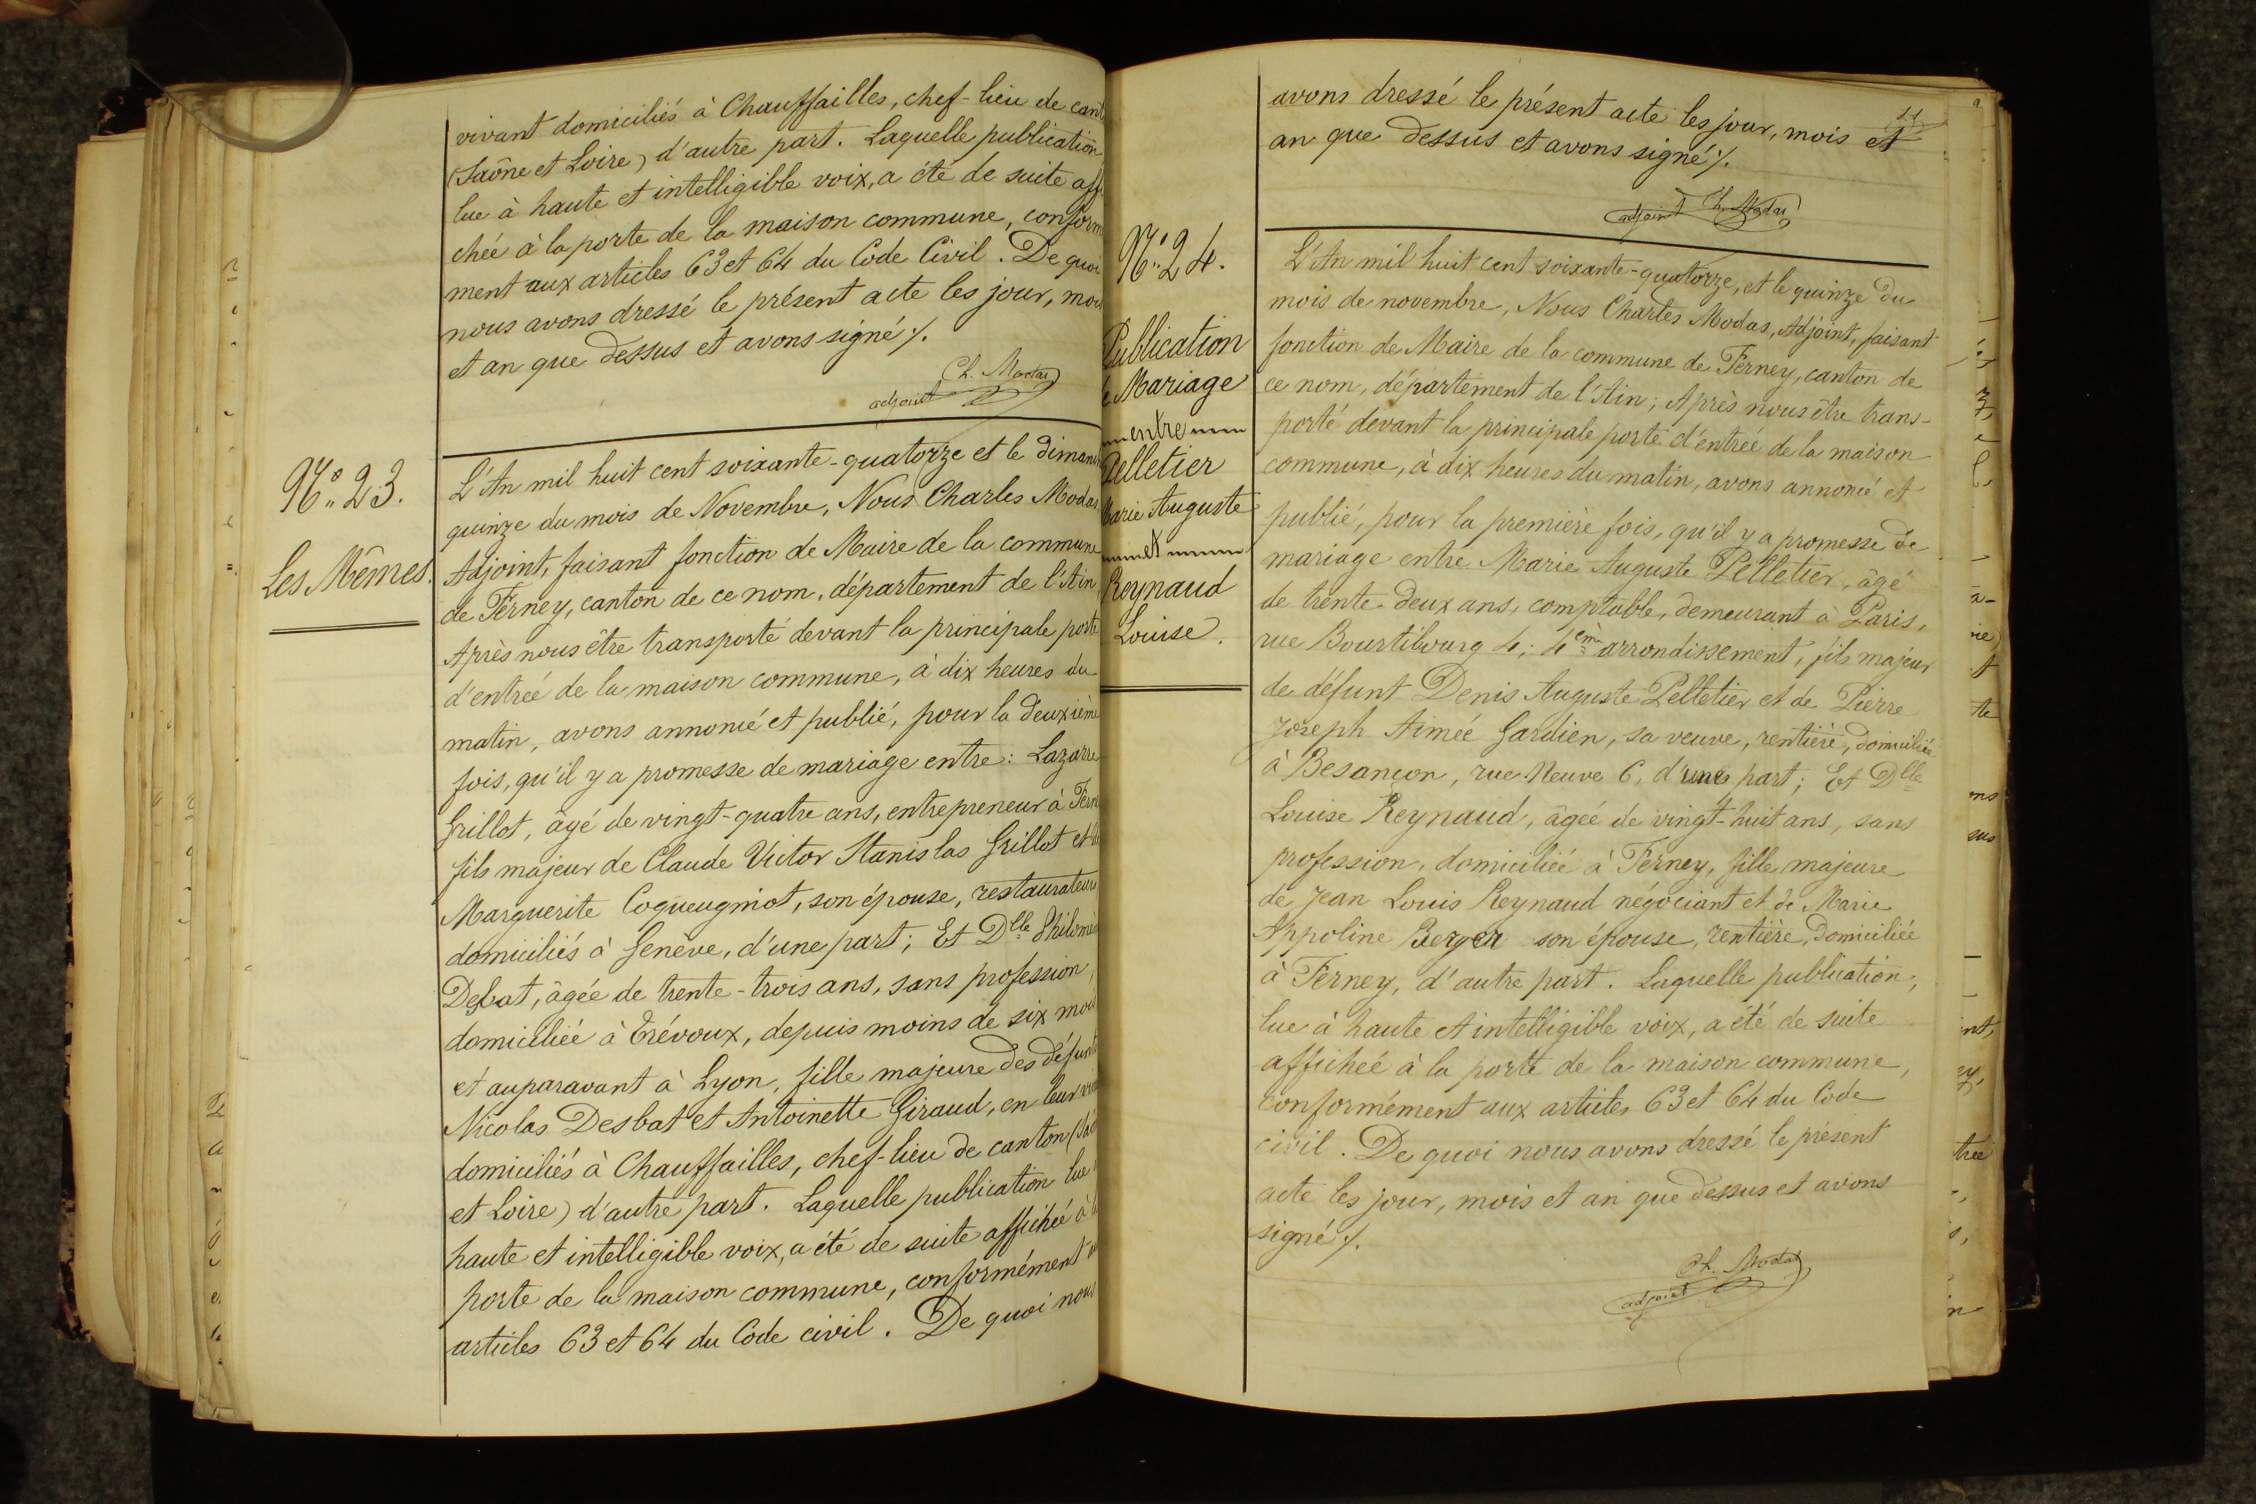 vivant domiciliés à Chauffailles, chef-lieu de cant
(Saône et Loire) d'autre part. Laquelle publication
lue à haute et intelligible voix, a été de suite affi
chée à la porte de la maison commune, conform
ment aux articles 63 et 64 du Code Civil. De quoi
nous avons dressé le présent acte les jour, mois
et an que dessus et avons signé ⁒.
Ch. Modas
adjoint
N° 23.
Les Mêmes.
L'An mil huit cent soixante-quatorze et le diman
quinze du mois de Novembre, Nous Charles Modas
Adjoint, faisant fonction de Maire de la commune
de Ferney, canton de ce nom, département de l'Ain
Après nous être transporté devant la principale porte
d'entreé de la maison commune, à dix heures du
matin, avons annoncé et publié, pour la deuxième
fois, qu'il y a promesse de mariage entre: Lazarre
Grillot, âgé de vingt-quatre ans, entrepreneur à Fern
fils majeur de Claude Victor Stanislas Grillot et de
Marguerite Coqueugniot, son épouse, restaurateurs
domiciliés à Genève, d'une part; Et Dlle Philomè
Desbat, âgée de trente-trois ans, sans profession,
domiciliée à Trévoux, depuis moins de six mois
et auparavant à Lyon, fille majeure des défunts
Nicolas Desbat et Antoinette Giraud, en leur viv
domiciliés à Chauffailles, chef-lieu de canton (Saô
et Loire) d'autre part. Laquelle publication lue
haute et intelligible voix, a été de suite affichée à la
porte de la maison commune, conformément au
articles 63 et 64 du Code civil. De quoi nous
11
avons dressé le présent acte les jour, mois et
an que dessus et avons signé ⁒.
adjoint Ch. Modas
N° 24.
Publication
de Mariage
entre
Pelletier
Marie Auguste
et
Reynaud
Louise.
L'An mil huit cent soixante-quatorze, et le quinze du
mois de novembre, Nous Charles Modas, Adjoint, faisant
fonction de Maire de la commune de Ferney, canton de
ce nom, département de l'Ain; Après nous être trans-
porté devant la principale porte d'entreé de la maison
commune, à dix heures du matin, avons annoncé et
publié, pour la première fois, qu'il y a promesse de
mariage entre Marie Auguste Pelletier, âgé
de trente deux ans, comptable, demeurant à Paris,
rue Bourtibourg 4; 4ème arrondissement, fils majeur
de défunt Denis Auguste Pelletier et de Pierre
Joseph Aimée Gardien, sa veuve, rentière, domiciliée
à Besançon, rue Neuve 6, d'une part; Et Dlle
Louise Reynaud, âgée de vingt-huit ans, sans
profession, domiciliée à Ferney, fille majeure
de Jean Louis Reynaud négociant et de Marie
Appoline Berger son épouse, rentière, domiciliée
à Ferney, d'autre part. Laquelle publication,
lue à haute et intelligible voix, a été de suite
affichée à la porte de la maison commune,
conformément aux articles 63 et 64 du Code
civil. De quoi nous avons dressé le présent
acte les jour, mois et an que dessus et avons
signé ⁒.
Ch. Modas
adjoint